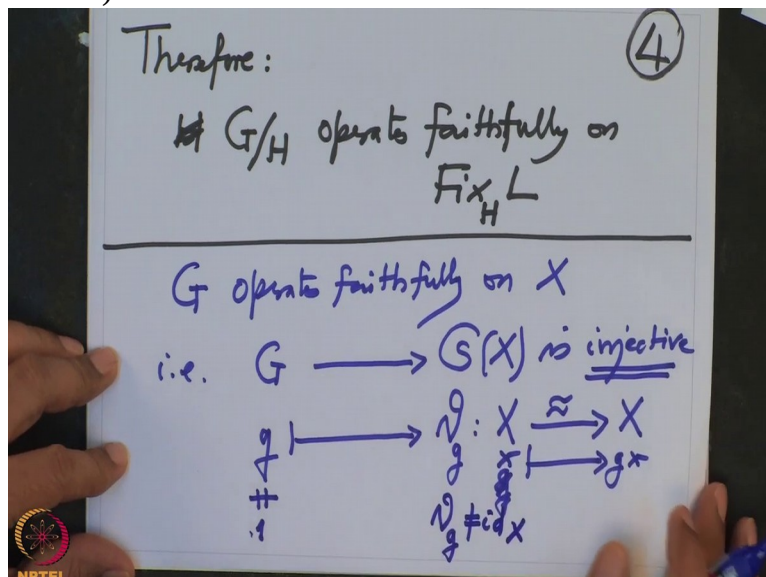 Therefore:
4
G/H operates faithfully on
Fix_H L
G operates faithfully on X
i.e. G ⟶ 𝔖(X) is injective
g ⟼ ϑ_g : X ≈⟶ X
x ⟼ gx
≠
1 ϑ_g ≠ id_X
NPTEL